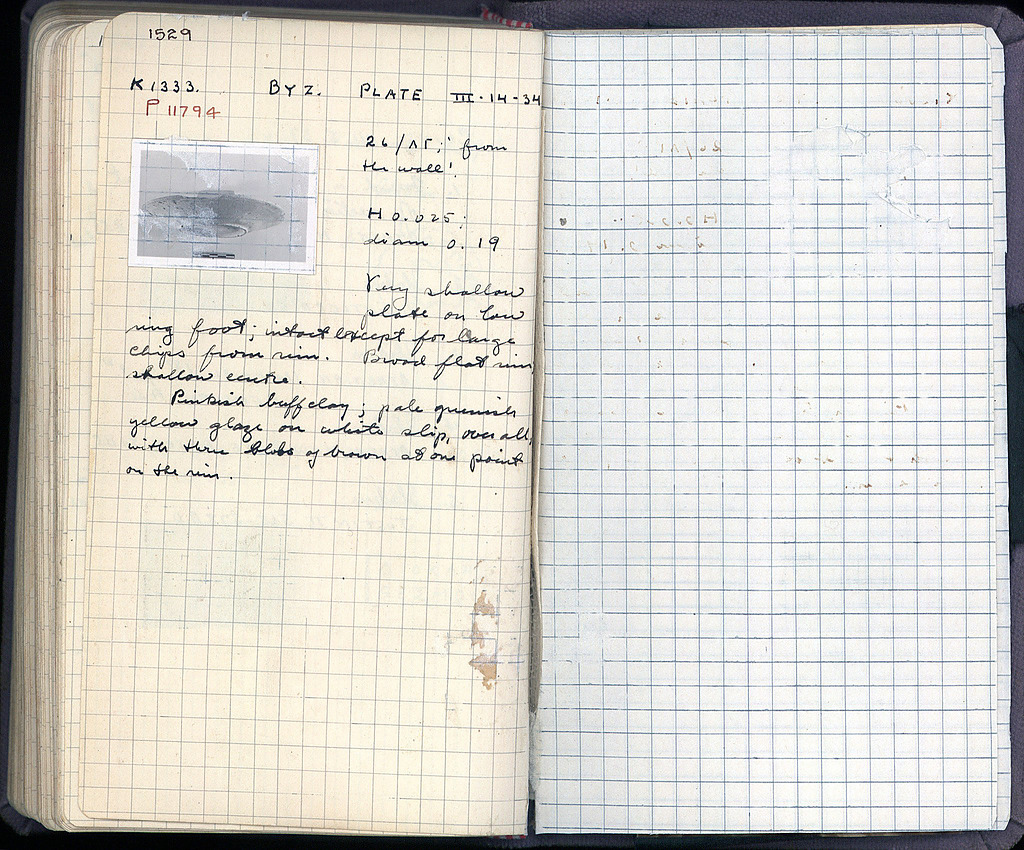 1529
K 1333. BYZ. PLATE III-14-34
P 11794
26/ΛΓ; from
the wall!
H 0.025;
diam 0.19
Very shallow
plate on low
ring foot; intact except for large
chips from rim. Broad flat rim
shallow centre.
Pinkish buff clay; pale greenish
yellow glaze on white slip, over all,
with three blobs of brown at one point
on the rim.